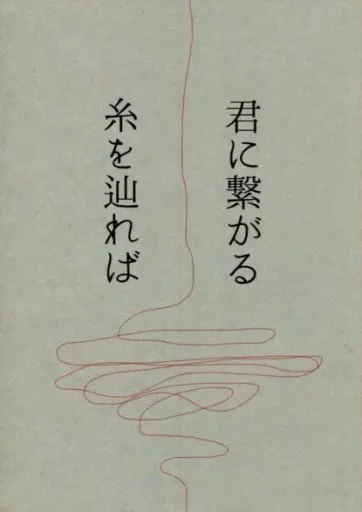 君に繋がる
糸を辿れば